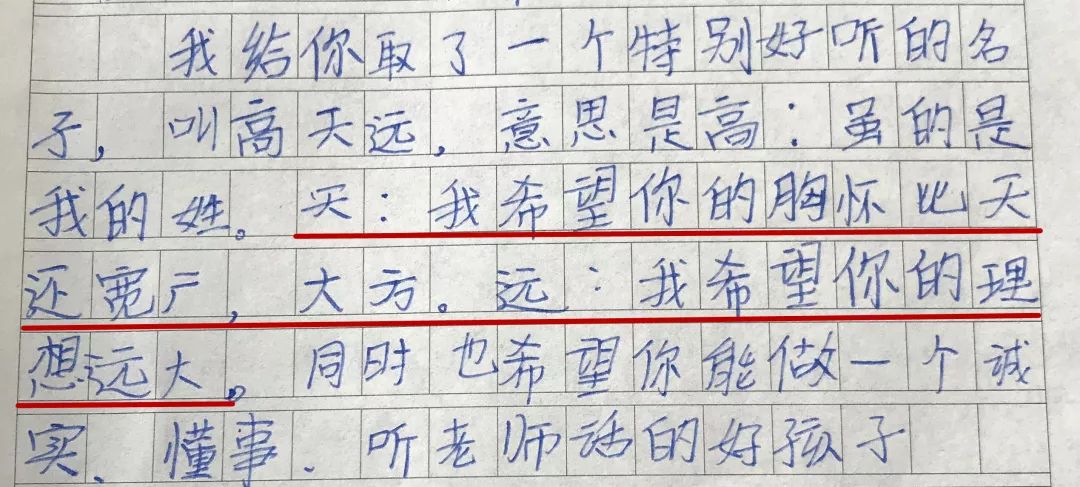 我给你取了一个特别好听的名
子，叫高天远，意思是高：虽的是
我的姓。天：我希望你的胸怀比天
还宽广，大方。远：我希望你的理
想远大。同时也希望你能做一个诚
实、懂事、听老师话的好孩子